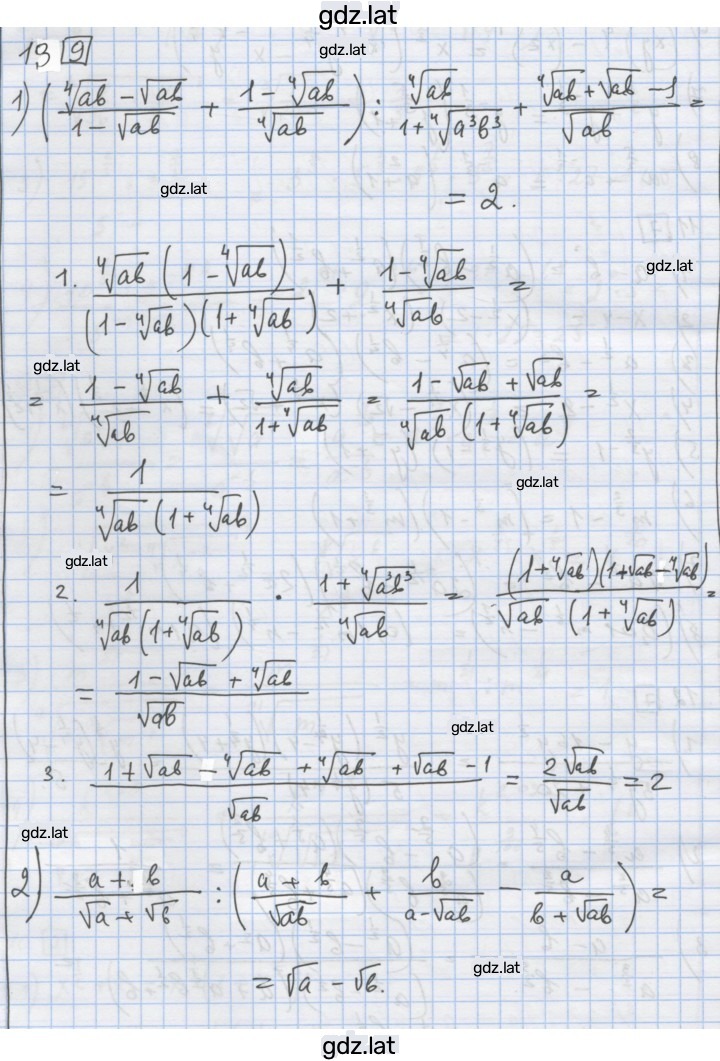 gdz.lat
19 [9]
gdz.lat
1) ( (⁴√ab − √ab)/(1 − √ab) + (1 − ⁴√ab)/(⁴√ab) ) : (⁴√ab)/(1 + ⁴√a³b³) + (⁴√ab + √ab − 1)/(√ab) =
gdz.lat
= 2.
1. (⁴√ab (1 − ⁴√ab))/((1 − ⁴√ab)(1 + ⁴√ab)) + (1 − ⁴√ab)/(⁴√ab) =
gdz.lat
gdz.lat
= (1 − ⁴√ab)/(⁴√ab) + (⁴√ab)/(1 + ⁴√ab) = (1 − √ab + √ab)/(⁴√ab (1 + ⁴√ab)) =
= 1/(⁴√ab (1 + ⁴√ab))
gdz.lat
gdz.lat
2. 1/(⁴√ab (1 + ⁴√ab)) · (1 + ⁴√a³b³)/(⁴√ab) = ((1 + ⁴√ab)(1 + √ab − ⁴√ab))/(√ab (1 + ⁴√ab)) =
= (1 − √ab + ⁴√ab)/(√ab)
gdz.lat
3. (1 + √ab − ⁴√ab + ⁴√ab + √ab − 1)/(√ab) = (2√ab)/(√ab) = 2
gdz.lat
2) (a + b)/(√a + √b) : ( (a + b)/(√ab) + b/(a − √ab) − a/(b + √ab) ) =
= √a − √b.
gdz.lat
gdz.lat